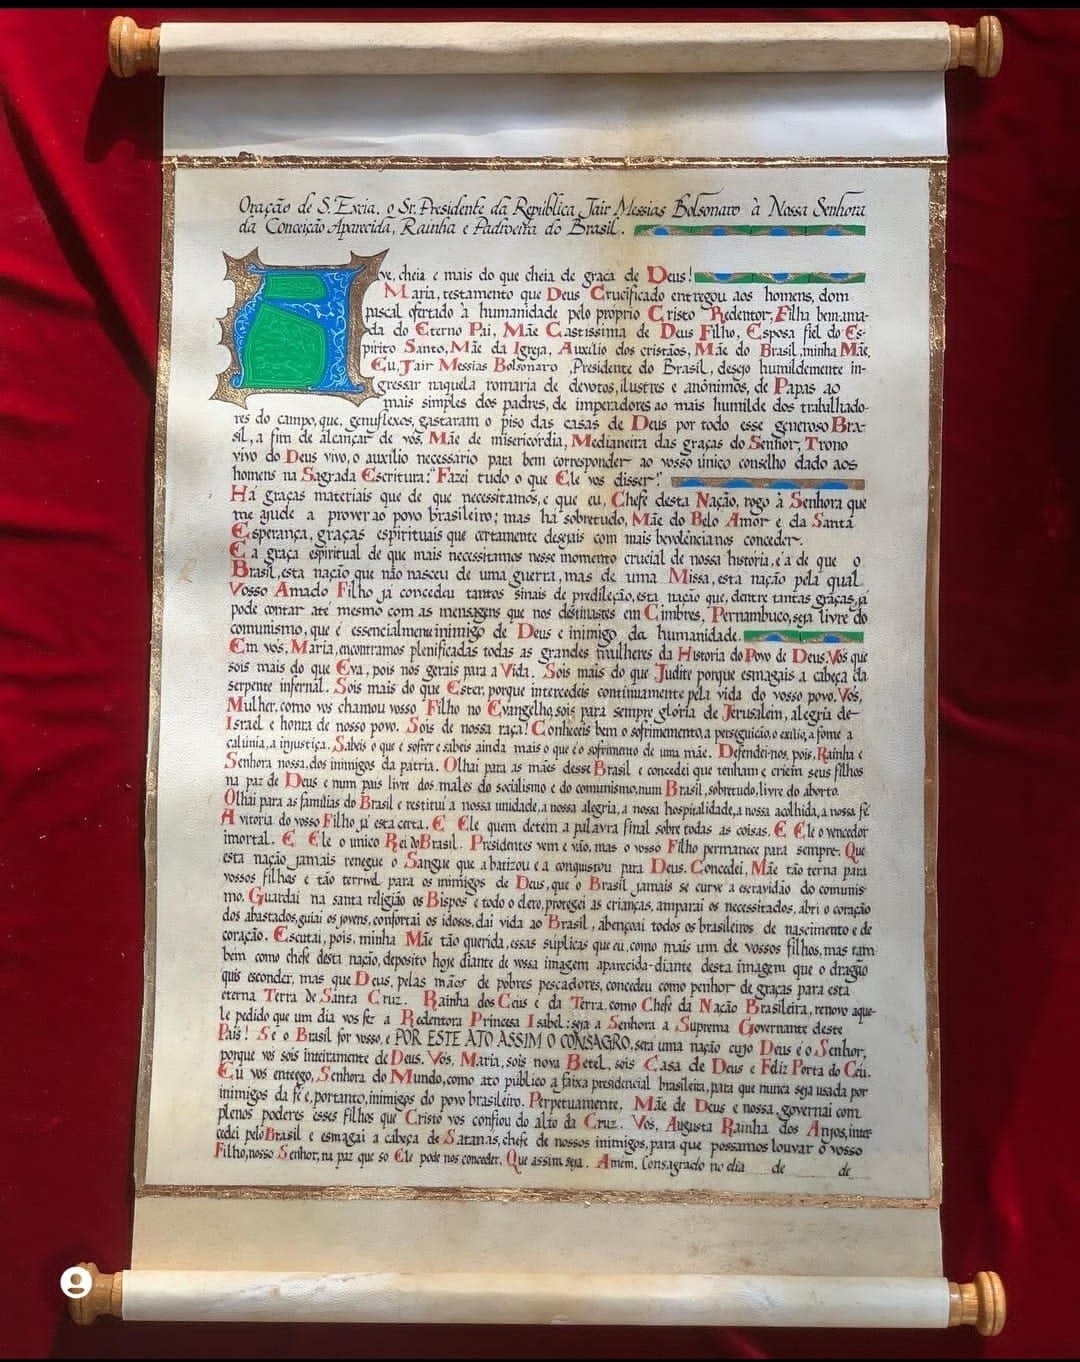 Oração de S. Excia. o Sr. Presidente da República Jair Messias Bolsonaro à Nossa Senhora
da Conceição Aparecida, Rainha e Padroeira do Brasil.
Ave, cheia e mais do que cheia de graça de Deus!
Maria, testamento que Deus Crucificado entregou aos homens, dom
pascal ofertado à humanidade pelo próprio Cristo Redentor, Filha bem-ama-
da do Eterno Pai, Mãe Castíssima de Deus Filho, Esposa fiel do Es-
pírito Santo, Mãe da Igreja, Auxílio dos cristãos, Mãe do Brasil, minha Mãe,
Eu, Jair Messias Bolsonaro, Presidente do Brasil, desejo humildemente in-
gressar naquela romaria de devotos, ilustres e anônimos, de Papas ao
mais simples dos padres, de imperadores ao mais humilde dos trabalhado-
res do campo, que, genuflexos, gastaram o piso das casas de Deus por todo esse generoso Bra-
sil, a fim de alcançar de vós, Mãe de misericórdia, Medianeira das graças do Senhor, Trono
vivo do Deus vivo, o auxílio necessário para bem corresponder ao vosso único conselho dado aos
homens na Sagrada Escritura: "Fazei tudo o que Ele vos disser".
Há graças materiais que de que necessitamos, e que eu, Chefe desta Nação, rogo à Senhora que
me ajude a prover ao povo brasileiro; mas há sobretudo, Mãe do Belo Amor e da Santa
Esperança, graças espirituais que certamente desejais com mais bevolência nos conceder.
E a graça espiritual de que mais necessitamos nesse momento crucial de nossa história, é a de que o
Brasil, esta nação que não nasceu de uma guerra, mas de uma Missa, esta nação pela qual
Vosso Amado Filho já concedeu tantos sinais de predileção, esta nação que, dentre tantas graças, já
pode contar até mesmo com as mensagens que nos destinastes em Cimbres, Pernambuco, seja livre do
comunismo, que é essencialmene inimigo de Deus e inimigo da humanidade.
Em vós, Maria, encontramos plenificadas todas as grandes mulheres da Historia do Povo de Deus. Vós que
sois mais do que Eva, pois nos gerais para a Vida. Sois mais do que Judite porque esmagais a cabeça da
serpente infernal. Sois mais do que Ester, porque intercedeis continuamente pela vida do vosso povo. Vós,
Mulher, como vos chamou vosso Filho no Evangelho, sois para sempre glória de Jerusalem, alegria de
Israel e honra de nosso povo. Sois de nossa raça! Conheceis bem o sofrimemento, a perseguição, o exílio, a fome a
calúnia, a injustiça. Sabeis o que é sofrer e sabeis ainda mais o que é o sofrimento de uma mãe. Defendei-nos, pois, Rainha e
Senhora nossa, dos inimigos da pátria. Olhai para as mães desse Brasil e concedei que tenham e criem seus filhos
na paz de Deus e num país livre dos males do socialismo e do comunismo, num Brasil, sobretudo, livre do aborto.
Olhai para as famílias do Brasil e restituí a nossa unidade, a nossa alegria, a nossa hospitalidade, a nossa acolhida, a nossa fé
A vitória do vosso Filho já está certa. E Ele quem detém a palavra final sobre todas as coisas. E Ele o vencedor
imortal. E Ele o único Rei do Brasil. Presidentes vem e vão, mas o vosso Filho permanece para sempre. Que
esta nação jamais renegue o Sangue que a batizou e a conquistou para Deus. Concedei, Mãe tão terna para
vossos filhos e tão terrível para os inimigos de Deus, que o Brasil jamais se curve a escravidão do comunis-
mo. Guardai na santa religião os Bispos e todo o clero, protegei as crianças, amparai os necessitados, abri o coração
dos abastados, guiai os jovens, confortai os idosos, dai vida ao Brasil, abençoai todos os brasileiros de nascimento e de
coração. Escutai, pois, minha Mãe tão querida, essas súplicas que eu, como mais um de vossos filhos, mas tam-
bém como chefe desta nação, deposito hoje diante de vossa imagem aparecida-diante desta imagem que o dragão
quis esconder, mas que Deus, pelas mãos de pobres pescadores, concedeu como penhor de graças para esta
eterna Terra de Santa Cruz. Rainha dos Céus e da Terra, como Chefe da Nação Brasileira, renovo aque-
le pedido que um dia vos fez a Redentora Princesa Isabel: seja a Senhora a Suprema Governante deste
País! Se o Brasil for vosso, e POR ESTE ATO ASSIM O CONSAGRO, será uma nação cujo Deus é o Senhor,
porque vós sois inteiramente de Deus. Vós, Maria, sois nova Betel, sois Casa de Deus e Feliz Porta do Céu.
Eu vos entrego, Senhora do Mundo, como ato público a faixa presidencial brasileira, para que nunca seja usada por
inimigos da fé e, portanto, inimigos do povo brasileiro. Perpetuamente, Mãe de Deus e nossa, governai com
plenos poderes esses filhos que Cristo vos confiou do alto da Cruz. Vós, Augusta Rainha dos Anjos, inter-
cedei pelo Brasil e esmagai a cabeça de Satanás, chefe de nossos inimigos, para que possamos louvar o vosso
Filho, nosso Senhor, na paz que só Ele pode nos conceder. Que assim seja. Amém. Consagrado no dia __ de ______ de __